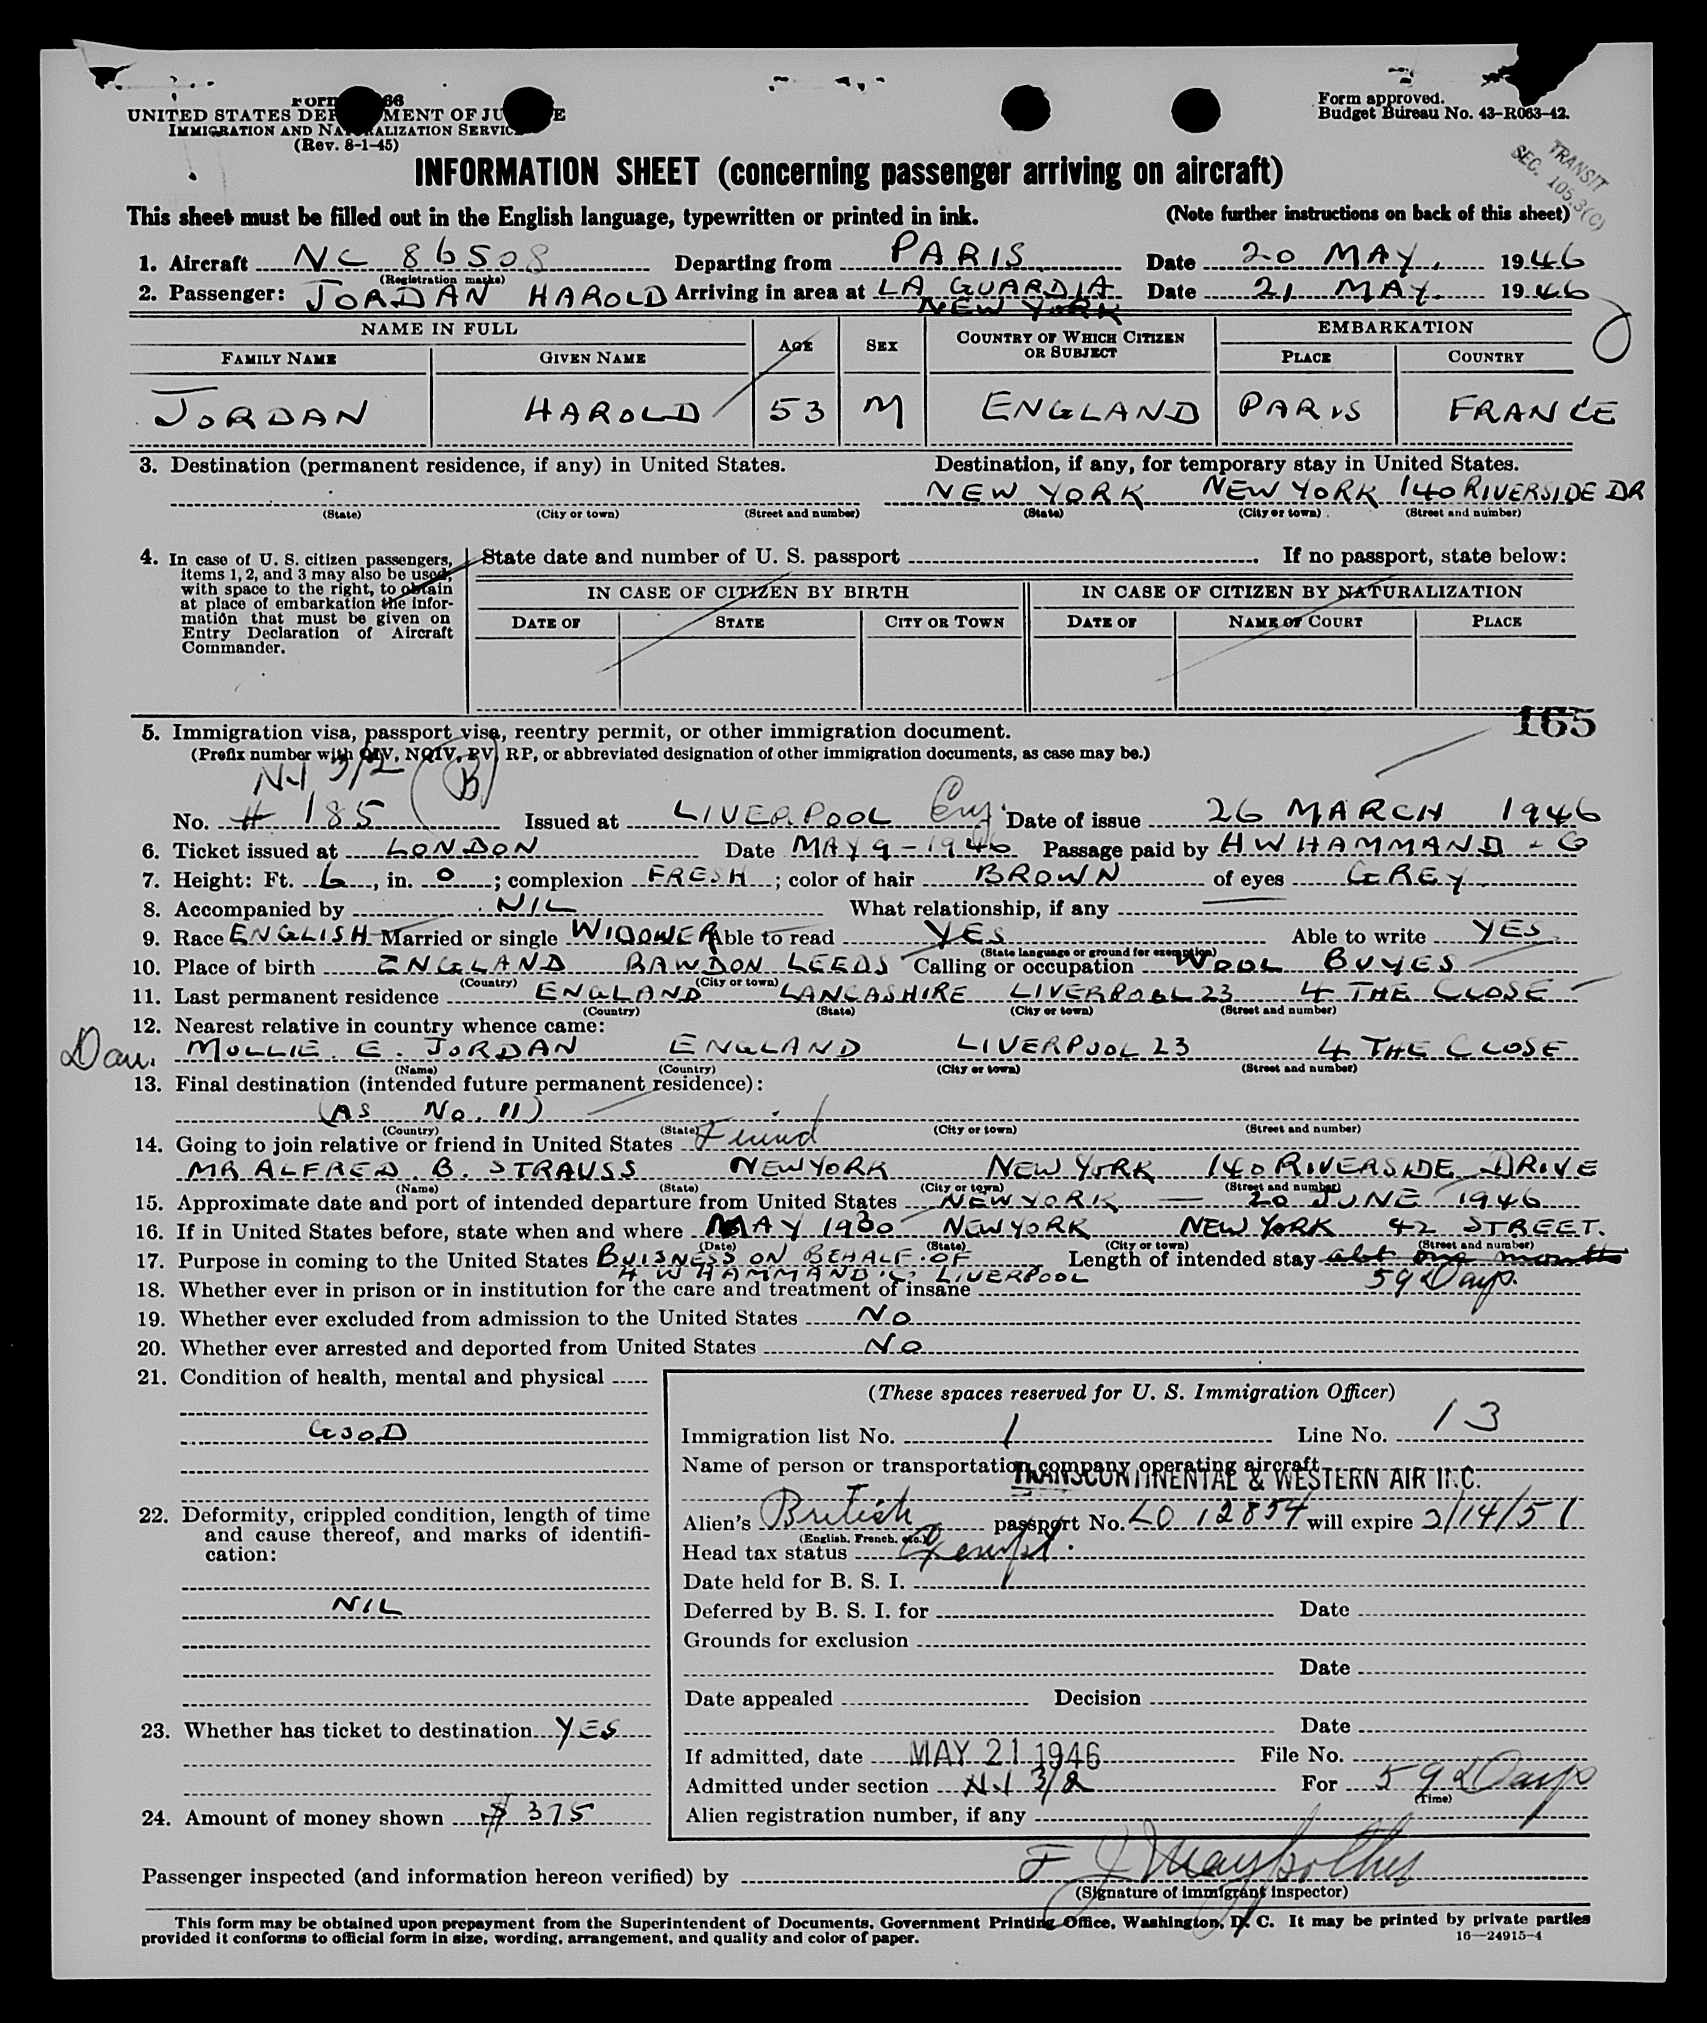 UNITED STATES DEPARTMENT OF JUSTICE
IMMIGRATION AND NATURALIZATION SERVICE
(Rev. 8-1-45)
Form approved.
Budget Bureau No. 43-R063-42.
TRANSIT
SEC. 105.3(C)
INFORMATION SHEET (concerning passenger arriving on aircraft)
This sheet must be filled out in the English language, typewritten or printed in ink. (Note further instructions on back of this sheet)
1. Aircraft NC 86508 Departing from PARIS Date 20 MAY. 1946
(Registration marks)
2. Passenger: JORDAN HAROLD Arriving in area at LA GUARDIA Date 21 MAY. 1946
NEW YORK
NAME IN FULL AGE SEX COUNTRY OF WHICH CITIZEN OR SUBJECT EMBARKATION
FAMILY NAME GIVEN NAME PLACE COUNTRY
JORDAN HAROLD 53 M ENGLAND PARIS FRANCE
3. Destination (permanent residence, if any) in United States. Destination, if any, for temporary stay in United States.
NEW YORK NEW YORK 140 RIVERSIDE DR
(State) (City or town) (Street and number) (State) (City or town) (Street and number)
4. In case of U. S. citizen passengers, items 1, 2, and 3 may also be used, with space to the right, to obtain at place of embarkation the information that must be given on Entry Declaration of Aircraft Commander.
State date and number of U. S. passport . If no passport, state below:
IN CASE OF CITIZEN BY BIRTH IN CASE OF CITIZEN BY NATURALIZATION
DATE OF STATE CITY OR TOWN DATE OF NAME OF COURT PLACE
165
5. Immigration visa, passport visa, reentry permit, or other immigration document.
(Prefix number with QIV, NQIV, PV, RP, or abbreviated designation of other immigration documents, as case may be.)
3/2 (B)
No. # 185 Issued at LIVERPOOL Eng. Date of issue 26 MARCH 1946
6. Ticket issued at LONDON Date MAY 9-1946 Passage paid by H W HAMMAND - G
7. Height: Ft. 6, in. 0; complexion FRESH; color of hair BROWN of eyes GREY
8. Accompanied by NIL What relationship, if any
9. Race ENGLISH Married or single WIDOWER Able to read YES Able to write YES
(State language or ground for exemption)
10. Place of birth ENGLAND RAWDON LEEDS Calling or occupation WOOL BUYES
(Country) (City or town)
11. Last permanent residence ENGLAND LANCASHIRE LIVERPOOL 23 4 THE CLOSE
(Country) (State) (City or town) (Street and number)
12. Nearest relative in country whence came:
Dau. MOLLIE E. JORDAN ENGLAND LIVERPOOL 23 4 THE CLOSE
(Name) (Country) (City or town) (Street and number)
13. Final destination (intended future permanent residence):
(AS No. 11)
(Country) (State) (City or town) (Street and number)
14. Going to join relative or friend in United States Friend
MR ALFRED B. STRAUSS NEW YORK NEW YORK 140 RIVERSIDE DRIVE
(Name) (State) (City or town) (Street and number)
15. Approximate date and port of intended departure from United States NEW YORK — 20 JUNE 1946
16. If in United States before, state when and where MAY 1930 NEW YORK NEW YORK 42 STREET.
(Date) (State) (City or town) (Street and number)
17. Purpose in coming to the United States BUISNESS ON BEHALF OF Length of intended stay abt one month
H W HAMMAND LIVERPOOL 59 Days.
18. Whether ever in prison or in institution for the care and treatment of insane
19. Whether ever excluded from admission to the United States NO
20. Whether ever arrested and deported from United States NO
21. Condition of health, mental and physical
GOOD
22. Deformity, crippled condition, length of time and cause thereof, and marks of identification:
NIL
23. Whether has ticket to destination YES
24. Amount of money shown $ 375
(These spaces reserved for U. S. Immigration Officer)
Immigration list No. 1 Line No. 13
Name of person or transportation company operating aircraft
TRANSCONTINENTAL & WESTERN AIR INC.
Alien's British passport No. LO 12854 will expire 2/14/51
(English, French, etc.)
Head tax status Exempt.
Date held for B. S. I.
Deferred by B. S. I. for Date
Grounds for exclusion
Date
Date appealed Decision
Date
If admitted, date MAY 21 1946 File No.
Admitted under section 3/2 For 59 Days
(Time)
Alien registration number, if any
Passenger inspected (and information hereon verified) by
(Signature of immigrant inspector)
This form may be obtained upon prepayment from the Superintendent of Documents, Government Printing Office, Washington, D. C. It may be printed by private parties
provided it conforms to official form in size, wording, arrangement, and quality and color of paper.
16—24915-4